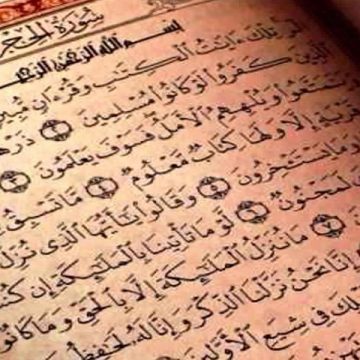 سُورَةُ الْحِجْرِ
بِسْمِ اللَّهِ الرَّحْمَٰنِ الرَّحِيمِ
الٓر تِلْكَ ءَايَٰتُ الْكِتَٰبِ وَقُرْءَانٍ مُّبِينٍ
الَّذِينَ كَفَرُوا لَوْ كَانُوا مُسْلِمِينَ ٢ ذَرْهُمْ
وَيَتَمَتَّعُوا وَيُلْهِهِمُ الْأَمَلُ فَسَوْفَ يَعْلَمُونَ ٣
قَرْيَةٍ إِلَّا وَلَهَا كِتَابٌ مَّعْلُومٌ ٤ مَّا تَسْبِقُ
وَمَا يَسْتَـْٔخِرُونَ ٥ وَقَالُوا يَٰٓأَيُّهَا الَّذِي نُزِّلَ
لَمَجْنُونٌ ٦ لَّوْ مَا تَأْتِينَا بِالْمَلَٰٓئِكَةِ إِن كُنتَ
٧ مَا نُنَزِّلُ الْمَلَٰٓئِكَةَ إِلَّا بِالْحَقِّ وَمَا كَانُوا
إِنَّا نَحْنُ نَزَّلْنَا الذِّكْرَ وَإِنَّا لَهُ لَحَٰفِظُونَ
فِي شِيَعِ الْأَوَّلِينَ